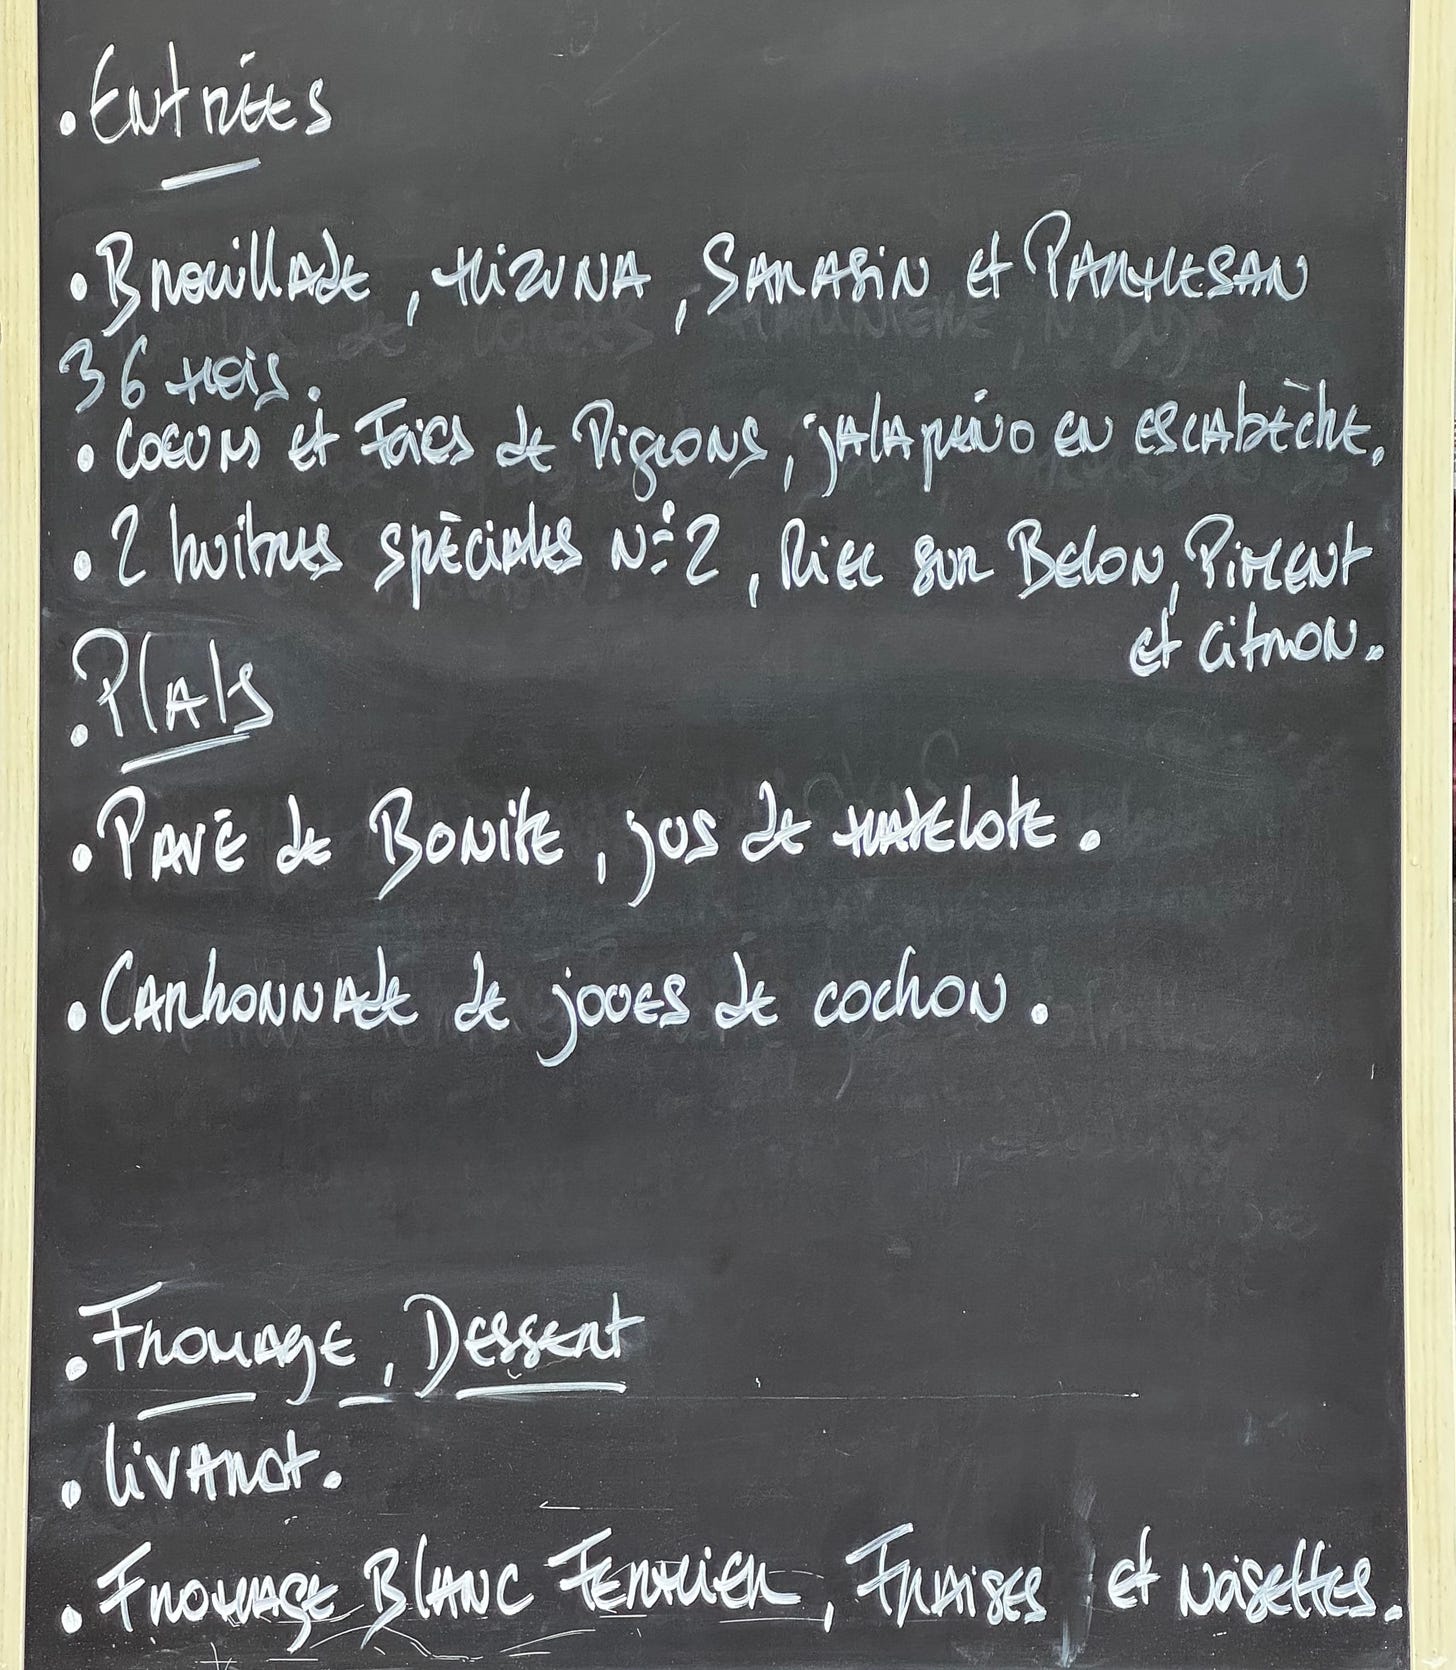 • Entrées
• Brouillade, Mizuna, Sarasin et Parmesan
36 mois.
• Coeurs et Foies de Pigeons, jalapéño en escabèche.
• 2 huitres spèciales N°2, Riec sur Belon, Piment
et citron.
• Plats
• Pavé de Bonite, jus de matelote.
• Carbonnade de joues de cochon.
• Fromage, Dessert
• Livarot.
• Fromage Blanc Fermier, Fraises et noisettes.